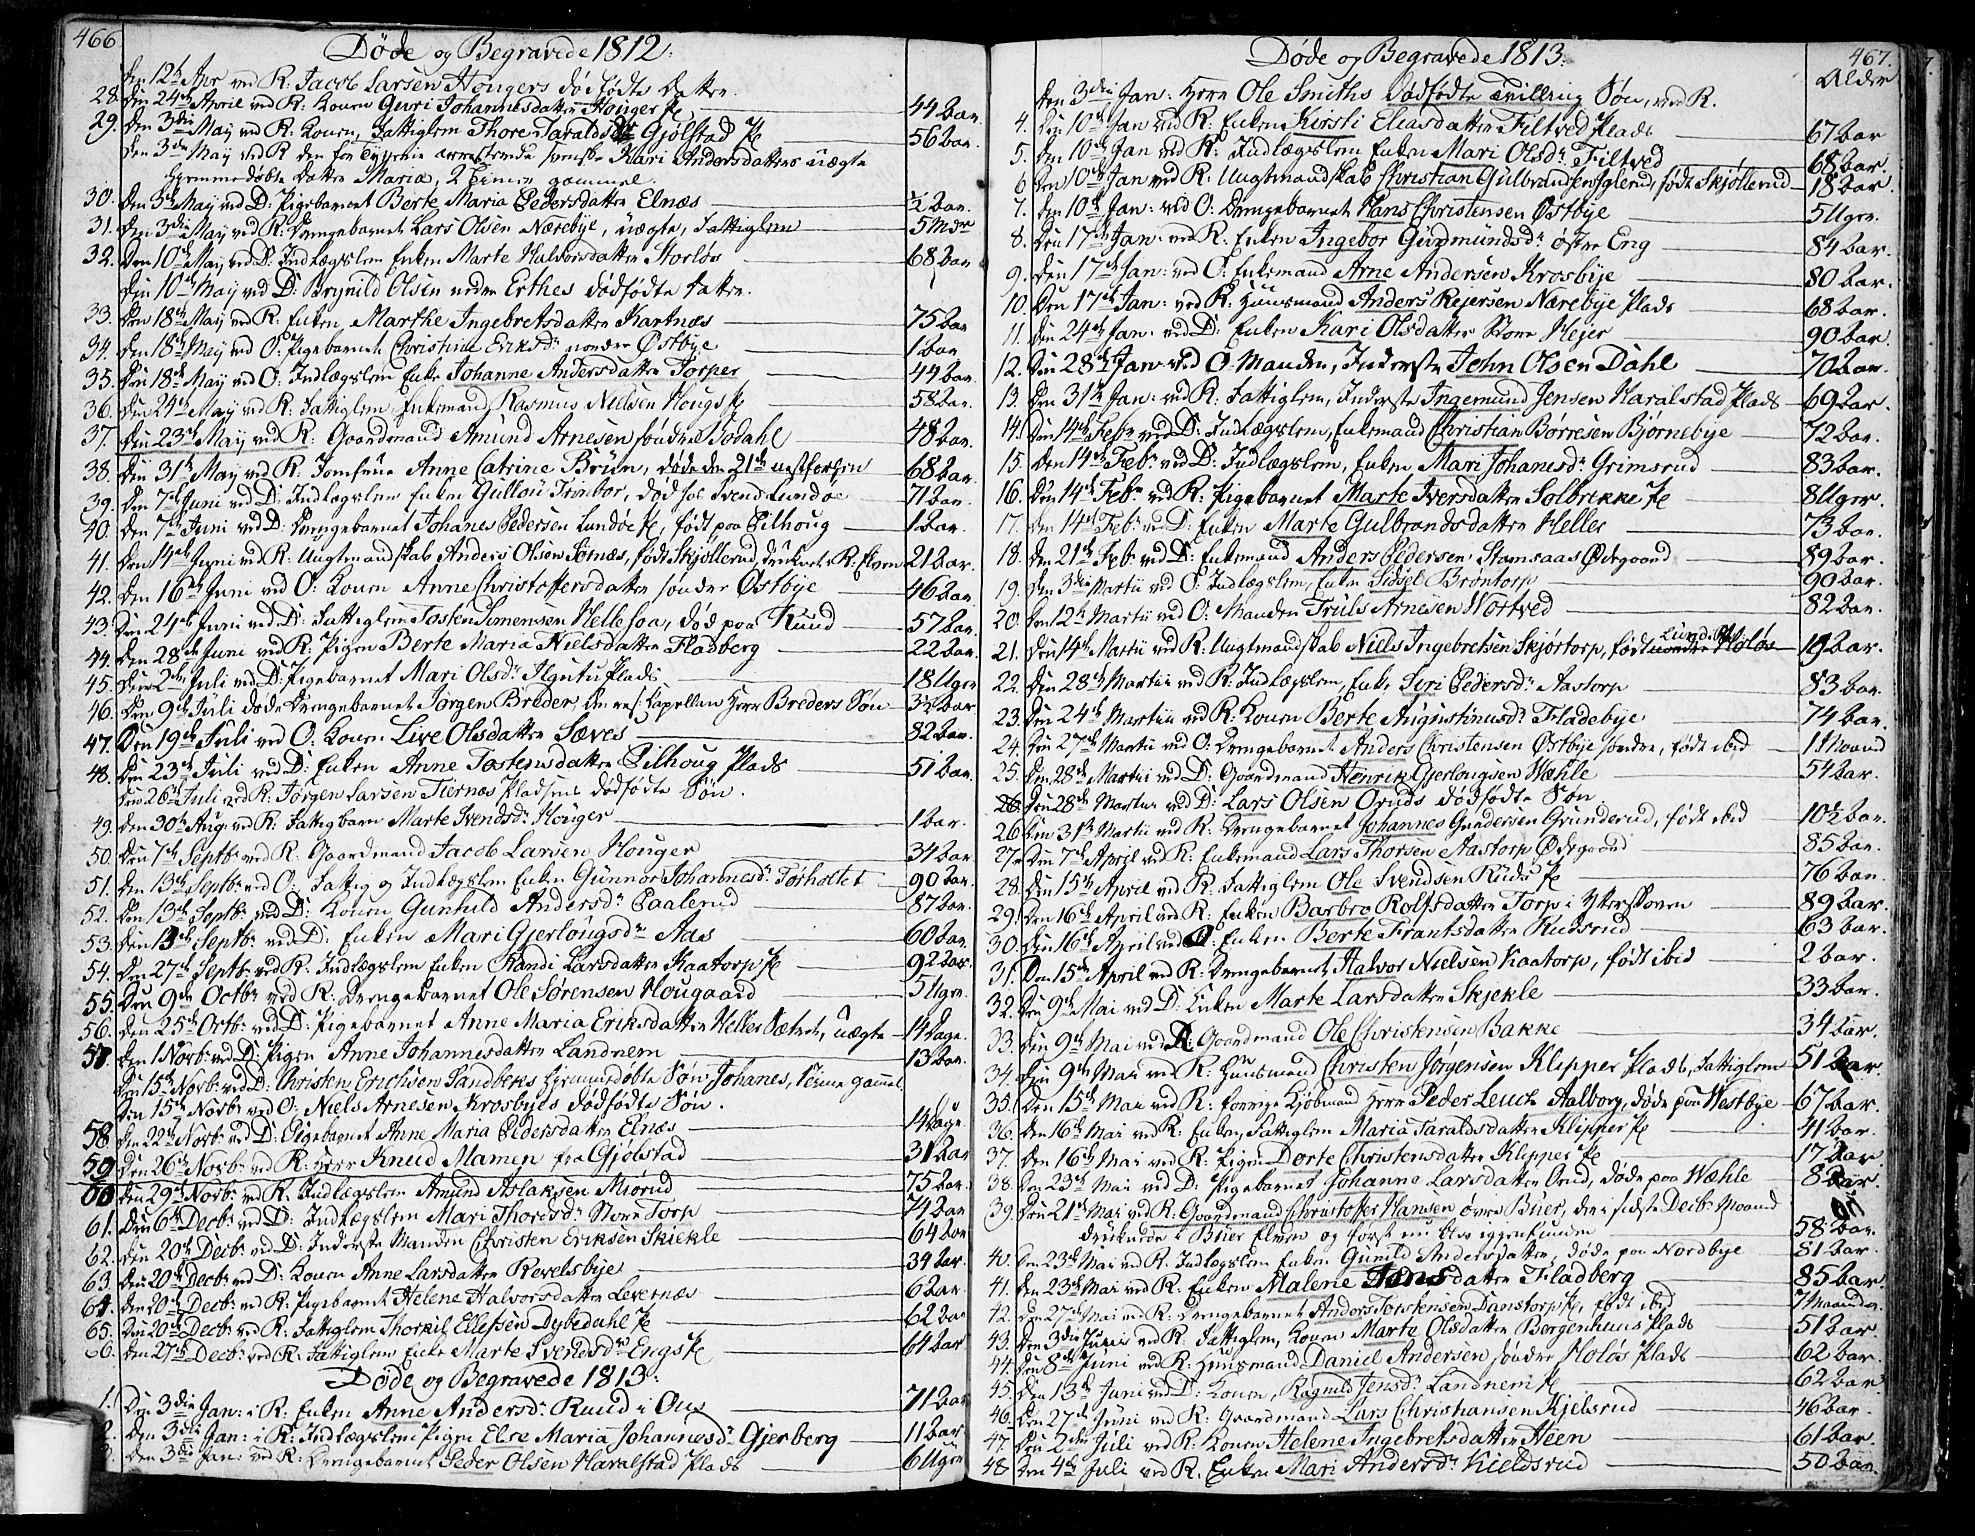 466
Døde og Begravede 1812.
Den 12te Apr ved R. Jacob Larsen Hougers dødfødte Datter.
28. Den 24de April ved R: Konen Guri Johannesdatter Houger Je 44 Aar.
29. Den 3die May ved R: Konen, Fattiglem Thore Taraldsdr Gjølstad Je 56 Aar.
Den 3die May ved R den for arresterede Kari Andersdatters uægte
hjemmedøbte Datter Maria, 2 Timer gammel.
30. Den 3die May ved D: Pigebarnet Berte Maria Pedersdatter Elnæs ½ Aar.
31. Den 3die May ved R: Drengebarnet Lars Olsen Nærebye, uægte, Fattiglem 5 Mdr
32. Den 10de May ved D: Indlægslem Enken Marte Halvorsdatter Storløs 68 Aar
Den 10de May ved D: Brynild Olsen nedre Erthes dødfødte Datter.
33. Den 18de May ved R: Enken, Marthe Ingebretsdatter Kartnæs 75 Aar
34. Den 18de May ved O: Pigebarnet Christine Eriksdr nordre Østbye 1 Aar
35. Den 18de May ved O: Indlægslem Enke Johanne Andersdatter Torper 44 Aar.
36. Den 24de May ved R: Fattiglem Enkemand Rasmus Nielsen Hougs Je 58 Aar.
37. Den 23de May ved R: Gaardmand Amund Arnesen søndre Sodahl 48 Aar.
38. Den 31te May ved R. Jomfrue Anne Catrine Brün, døde den 21de næstforhen 68 Aar.
39. Den 7de Juni ved D: Indlægslem Enken Gullou Trinbor, død hos Svend Lundøe 71 Aar.
40. Den 7de Juni ved D: Drengebarnet Johanes Pedersen Lundøe Je, født paa Eilhoug 1 Aar.
41. Den 14de Juni ved R: Ungtmandskab Anders Olsen Sørnæs, født Skjøllerud, druknet i R: Elven 21 Aar.
42. Den 16de Juni ved O: Konen Anne Christoffersdatter søndre Østbye 46 Aar.
43. Den 21de Juni ved D: Fattiglem Tosten Simensen Hellesaa, død paa Ruud 57 Aar.
44. Den 28de Juni ved R: Pigen Berte Maria Nielsdatter Fladberg 22 Aar.
45. Den 2den Juli ved D: Pigebarnet Mari Olsdr Plads 18 Uger
46. Den 9de Juli døde Drengebarnet Jørgen Breder, den res: Capellan Herr Breders Søn 3½ Aar
47. Den 19de Juli ved O: Konen Live Olsdatter Sæves 82 Aar.
48. Den 23de Juli ved D: Enken Anne Tostensdatter Eilhoug Plads 51 Aar.
Den 26de Juli ved R: Jørgen Larsen Tiernæs Pladsens dødfødte Søn.
49. Den 30te Aug: ved R: Fattigbarn Marte Svendsdr Houger 1 Aar.
50. Den 7de Septbr ved R: Gaardmand Jacob Larsen Houger 34 Aar.
51. Den 13de Septbr ved O: Fattig og Indlægslem Enken Gunnor Johannesdr. Torholtet 90 Aar.
52. Den 13de Septbr ved D: Konen Gunhild Andersdr Paalerud 87 Aar.
53. Den 13de Septbr ved D: Enken Mari Gjerlougsdr Aas 60 Aar.
54. Den 27de Septbr ved R: Indlægslem Enken Randi Larsdatter Kaatorp Je 92 Aar.
55. Den 9de Octbr ved R: Drengebarnet Ole Sørensen Hougaard 5 Uger.
56. Den 25de Octbr ved D: Pigebarnet Anne Maria Eriksdatter Heller Sætret, uægte 14 Dage.
57. Den 1 Novbr ved D: Pigen Anne Johannesdatter Landnem 13 Aar.
Den 15de Novbr ved D: Christen Erichsen Sandbeks hjemmedøbte Søn Johanes, 1 Time gammel
Den 15de Novbr ved O: Niels Arnesen Krosbyes dødfødte Søn.
58. Den 22de Novbr ved D: Pigebarnet Anne Maria Pedersdatter Elnæs 14 Dage.
59. Den 26de Novbr ved R: Herr Knud Mamen fra Gjølstad 31 Aar
60. Den 29de Novbr ved R: Indlægslem Amund Aslaksen Miørud 75 Aar.
61. Den 6te Decbr ved D: Indlægslem Mari Thoresdr Store Torp 74 Aar
62. Den 20de Decbr ved D: Inderste Manden Christen Eriksen Skiekle 64 Aar
63. Den 20de Decbr ved D: Konen Anne Larsdatter Revelsbye 34 Aar.
64. Den 20de Decbr ved R: Pigebarnet Helene Halvorsdatter Levernæs 6 Aar.
65. Den 20de Decbr ved R: Fattiglem Thorkil Ellefsen Dybedahl Je 62 Aar
66. Den 27de Decbr ved R: Fattiglem Enke Marte Svendsdr Engs Je 64 Aar
Døde og Begravede 1813:
1. Den 3die Jan: i R: Enken Anne Andersdr. Ruud i Ous 71 Aar
2. Den 3die Jan: i R: Indlægslem Pigen Else Maria Johannesdr Gjerberg 11 Aar
3. Den 3die Jan: ved R: Drengebarnet Peder Olsen Haralstad Plads 6 Uger
467.
Døde og Begravede 1813.
Alder
Den 3die Jan: Herr Ole Smiths dødfødte tvilling Søn, ved R.
4. Den 10de Jan ved R: Enken Kirsti Eliasdatter Filtved Plads 67 Aar
5. Den 10de Jan ved R: Indlægslem Enken Mari Olsdr. Filtved 68 Aar.
6. Den 10de Jan ved R: Ungtmandskab Christian Gulbrandsen Iglerud, født Skjøllerud 18 Aar.
7. Den 10de Jan: ved O: Drengebarnet Hans Christensen Østbye 5 Uger.
8. Den 17de Jan: ved R: Enken Ingebor Gudmundsdr østre Eng 84 Aar.
9. Den 17de Jan: ved O: Enkemand Arne Andersen Krosbye 80 Aar.
10. Den 17de Jan: ved R: Huusmand Anders Rejersen Nærebye Plads 68 Aar.
11. Den 24de Jan: ved D: Enken Kari Olsdatter Store Hejer 90 Aar.
12. Den 28de Jan: ved O: Manden, Inderste John Olsen Dahl 70 Aar.
13. Den 31te Jan: ved R: Fattiglem, Inderste Ingemund Jensen Haralstad Plads 69 Aar.
14. Den 14de Febr ved D: Indlægslem, Enkemand Christian Børresen Bjørnebye 72 Aar.
15. Den 14de Febr ved D: Indlægslem, Enken Mari Johanesdr Grimsrud 83 Aar.
16. Den 14de Febr ved R: Pigebarnet Marte Iversdatter Solbrekke Je 8 Uger.
17. Den 14de Febr ved D: Enken Marte Gulbrandsdatter Heller 73 Aar.
18. Den 21de Febr ved D: Enkemand Anders Pedersen Stamsaas Ødegaard 89 Aar.
19. Den 3die Martii ved O: Indlægslem, Enke Sidsel Brøntorp 90 Aar.
20. Den 12te Martii ved O: Manden Truls Arnesen Nortved 82 Aar.
21. Den 14de Martii ved R: Ungtmandskab Niels Ingebretsen Skjørtorp, født nordre Holøs 19 Aar.
22. Den 28de Martii ved R: Indlægslem, Enke Siri Pedersdr Aastorp 83 Aar.
23. Den 24de Martii ved R: Konen Berte Augustinusdr Fladebye 74 Aar.
24. Den 27de Martii ved O: Drengebarnet Anders Christensen Østbye søndre, født ibid 1 Maaned
25. Den 28de Martii ved D: Gaardmand Henrik Gjerlougsen Wæhle 54 Aar.
26. Den 28de Martii ved D: Lars Olsen Oruds dødfødte Søn
26. Den 31te Martii ved R: Drengebarnet Johannes Gundersen Grunderud, født ibid 10½ Aar.
27. Den 7de April ved R: Enkemand Lars Thorsen Aastorp Ødegaard 85 Aar.
28. Den 15de April ved R: Fattiglem Ole Svendsen Ruds Je 76 Aar.
29. Den 16de April ved R: Enken Barbro Rolfsdatter Torp i Ytterskoven 89 Aar.
30. Den 16de April ved O: Enken Berte Frantsdatter Rudsrud 63 Aar.
31. Den 15de April ved R: Drengebarnet Halvor Nielsen Kaatorp, født ibid 2 Aar.
32. Den 9de Mai ved D: Enken Marte Larsdatter Skjekle 33 Aar.
33. Den 9de Mai ved D: Gaardmand Ole Christensen Bakke 34 Aar.
34. Den 9de Mai ved R: Huusmand Christen Jørgensen Klipper Plads, Fattiglem 51 Aar.
35. Den 15de Mai ved R: forrige Kjøbmand Herr Peder Leuch Aalborg, døde paa Westbye 67 Aar.
36. Den 16de Mai ved R: Enken, Fattiglem Maria Taraldsdatter Klipper Je 41 Aar.
37. Den 16de Mai ved R: Pigen Dorte Christensdatter Klepper Je 17 Aar
38. Den 23de Mai ved D: Pigebarnet Johanne Larsdatter Orud, døde paa Wæhle 8 Aar.
39. Den 21de Mai ved R: Gaardmand Christoffer Hansen øvre Buer, der i sidste Decbr Maaned
druknede i Buer Elven og først nu blev igjenfunden 58 Aar.
40. Den 23de Mai ved R. Indlægslem Enken Gunild Andersdatter, døde paa Nordbye 81 Aar.
41. Den 23de Mai ved R: Enken Malene Jensdatter Fladberg 85 Aar.
42. Den 27de Mai ved R: Drengebarnet Anders Torstensen Danstorp Je, født ibid 7 Maaneder
43. Den 3die Juni ved R: Fattiglem, Konen Marte Olsdatter Bergenhuus Plads 51 Aar.
44. Den 8de Juni ved R: Huusmand Daniel Andersen søndre Holøs Plads 62 Aar.
45. Den 13de Juni ved D: Konen, Ragnild Jensdr. Landnem Je 62 Aar.
46. Den 27de Juni ved R: Gaardmand Lars Christiansen Kjelsrud 46 Aar.
47. Den 2den Juli ved R: Konen Helene Ingebretsdatter Heen 61 Aar.
48. Den 4de Juli ved R. Enken Mari Andersdr Kieldsrud 50 Aar.